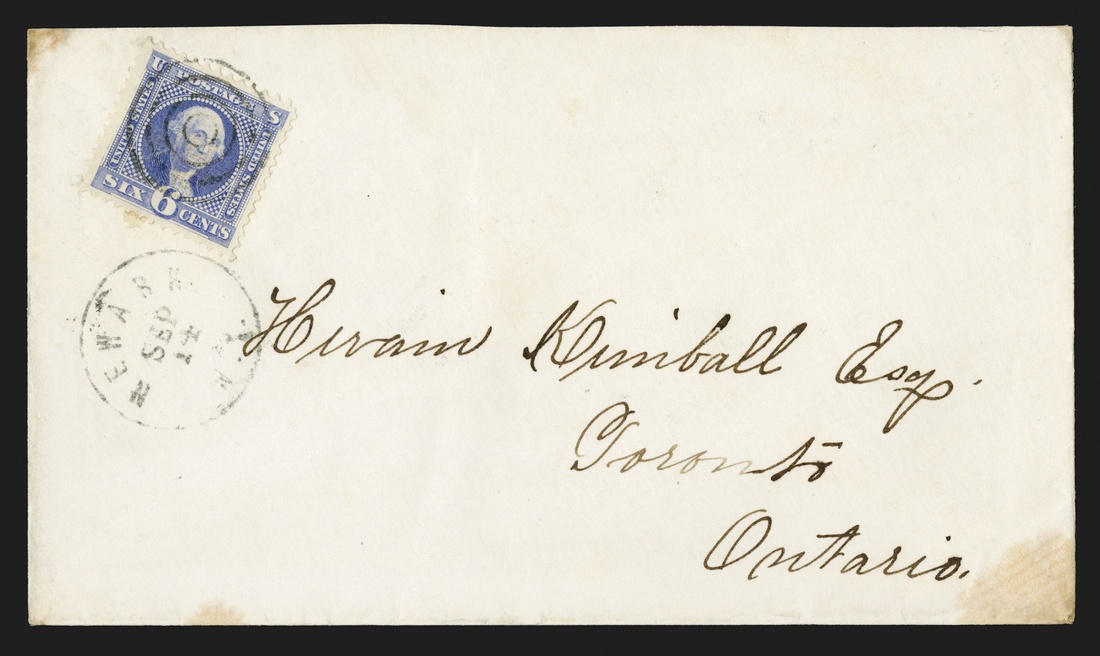 U POSTAGE S
UNITED STATES
UNITED STATES
SIX 6 CENTS
NEWARK
SEP
14
N.Y.
Hiram Kimball Esq.
Toronto
Ontario.